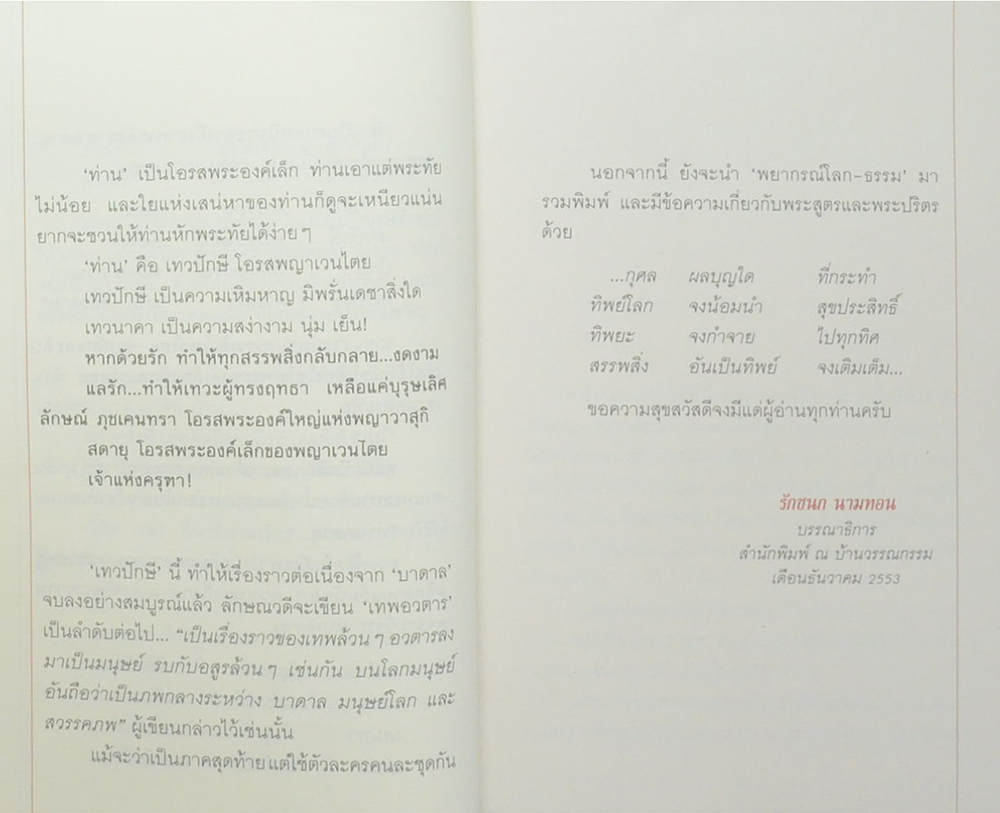 ‘ท่าน’ เป็นโอรสพระองค์เล็ก ท่านเอาแต่พระทัย
ไม่น้อย และใยแห่งเสน่หาของท่านก็ดูจะเหนียวแน่น
ยากจะชวนให้ท่านหักพระทัยได้ง่าย ๆ
‘ท่าน’ คือ เทวปักษี โอรสพญาเวนไตย
เทวปักษี เป็นความเหิมหาญ มิพรั่นเดชาสิ่งใด
เทวนาคา เป็นความสง่างาม นุ่ม เย็น!
หากด้วยรัก ทำให้ทุกสรรพสิ่งกลับกลาย...งดงาม
แลรัก...ทำให้เทวะผู้ทรงฤทธา เหลือแค่บุรุษเลิศ
ลักษณ์ ภุชเคนทรา โอรสพระองค์ใหญ่แห่งพญาวาสุกิ
สดายุ โอรสพระองค์เล็กของพญาเวนไตย
เจ้าแห่งครุฑา!
‘เทวปักษี’ นี้ ทำให้เรื่องราวต่อเนื่องจาก ‘บาดาล’
จบลงอย่างสมบูรณ์แล้ว ลักษณวดีจะเขียน ‘เทพอวตาร’
เป็นลำดับต่อไป... “เป็นเรื่องราวของเทพล้วน ๆ อวตารลง
มาเป็นมนุษย์ รบกับอสูรล้วน ๆ เช่นกัน บนโลกมนุษย์
อันถือว่าเป็นภพกลางระหว่าง บาดาล มนุษย์โลก และ
สวรรคภพ” ผู้เขียนกล่าวไว้เช่นนั้น
แม้จะว่าเป็นภาคสุดท้าย แต่ใช้ตัวละครคนละชุดกัน
นอกจากนี้ ยังจะนำ ‘พยากรณ์โลก-ธรรม’ มา
รวมพิมพ์ และมีข้อความเกี่ยวกับพระสูตรและพระปริตร
ด้วย
...กุศล ผลบุญใด ที่กระทำ
ทิพย์โลก จงน้อมนำ สุขประสิทธิ์
ทิพยะ จงกำจาย ไปทุกทิศ
สรรพสิ่ง อันเป็นทิพย์ จงเติมเต็ม...
ขอความสุขสวัสดีจงมีแด่ผู้อ่านทุกท่านครับ
รักชนก นามทอน
บรรณาธิการ
สำนักพิมพ์ ณ บ้านวรรณกรรม
เดือนธันวาคม 2553